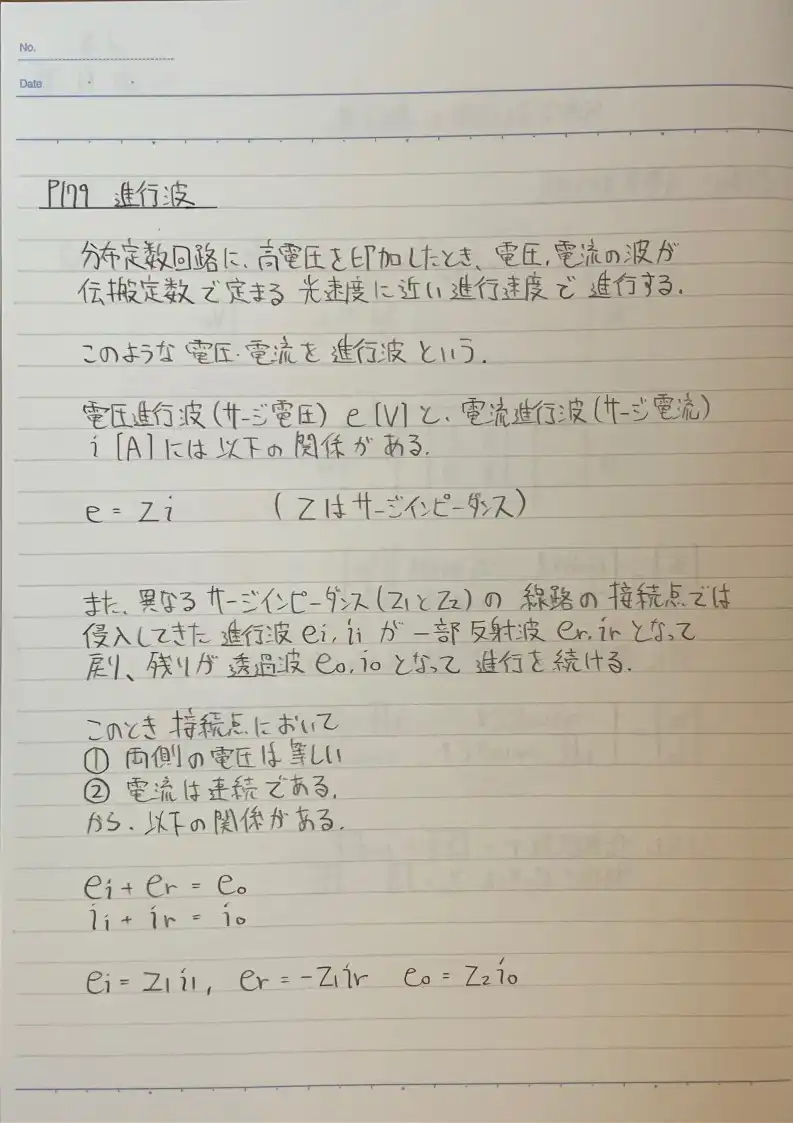 No.
Date
P179 進行波
分布定数回路に、高電圧を印加したとき、電圧,電流の波が
伝搬定数で定まる光速度に近い進行速度で進行する.
このような電圧・電流を進行波という.
電圧進行波(サージ電圧) e [V]と、電流進行波(サージ電流)
i [A]には以下の関係がある.
e = Zi (Zはサージインピーダンス)
また、異なるサージインピーダンス(Z1とZ2)の線路の接続点では
侵入してきた進行波ei, iiが一部反射波er, irとなって
戻り、残りが透過波eo, ioとなって進行を続ける.
このとき接続点において
① 両側の電圧は等しい
② 電流は連続である.
から、以下の関係がある.
ei + er = eo
ii + ir = io
ei = Z1i1, er = -Z1ir eo = Z2io